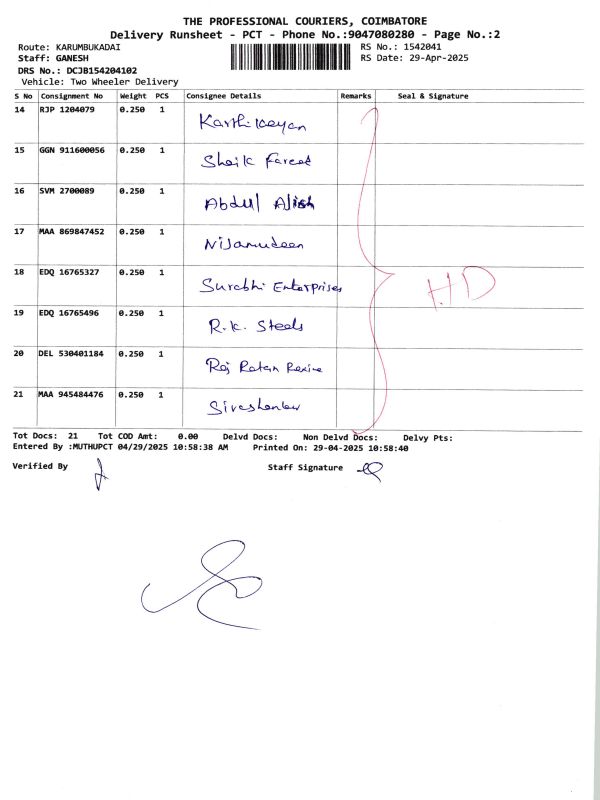 THE PROFESSIONAL COURIERS, COIMBATORE
Delivery Runsheet - PCT - Phone No.:9047080280 - Page No.:2
Route: KARUMBUKADAI
Staff: GANESH
DRS No.: DCJB154204102
Vehicle: Two Wheeler Delivery
RS No.: 1542041
RS Date: 29-Apr-2025
S No Consignment No Weight PCS Consignee Details Remarks Seal & Signature
14 RJP 1204079 0.250 1 Karthikeyan
15 GGN 911600056 0.250 1 Shaik Fareed
16 SVM 2700089 0.250 1 Abdul
17 MAA 869847452 0.250 1 Nijamudeen
18 EDQ 16765327 0.250 1 Surabhi Enterprises
HD
19 EDQ 16765496 0.250 1 R.K. Steels
20 DEL 530401184 0.250 1 Raj Ratan Rexine
21 MAA 945484476 0.250 1 Sivashankar
Tot Docs: 21 Tot COD Amt: 0.00 Delvd Docs: Non Delvd Docs: Delvy Pts:
Entered By :MUTHUPCT 04/29/2025 10:58:38 AM Printed On: 29-04-2025 10:58:40
Verified By Staff Signature